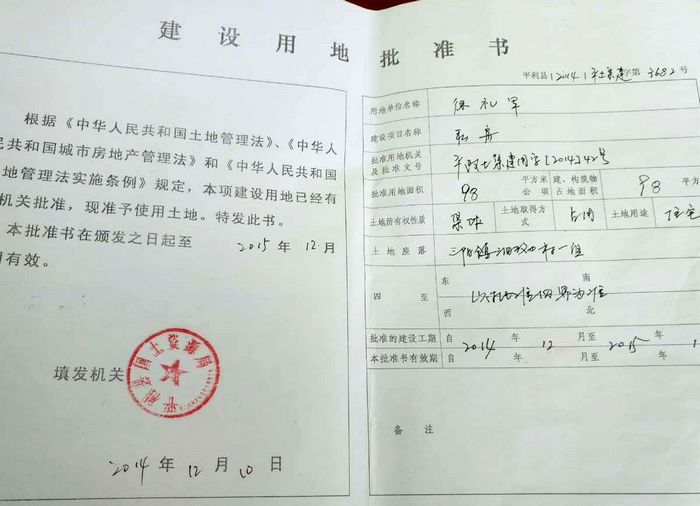 建设用地批准书
根据《中华人民共和国土地管理法》、《中华人
民共和国城市房地产管理法》和《中华人民共和国
地管理法实施条例》规定，本项建设用地已经有
机关批准，现准予使用土地。特发此书。
本批准书在颁发之日起至 2015 年 12 月
有效。
平利县国土资源局
填发机关
2014 年 12 月 10 日
平利县(2014)平土集建字第3682号
用地单位名称 徐礼军
建设项目名称 私房
批准用地机关及批准文号 平政土集建用字[2014]42号
批准用地面积 98 平方米 公顷 建、构筑物占地面积 98 平方
土地所有权性质 集体 土地取得方式 占用 土地用途 住宅
土地座落 三阳镇 村一组
四至 东 南 西 北 界为准
批准的建设工期 自 2014 年 12 月至 2015 年 1
本批准书有效期 自 年 月至 年
备注